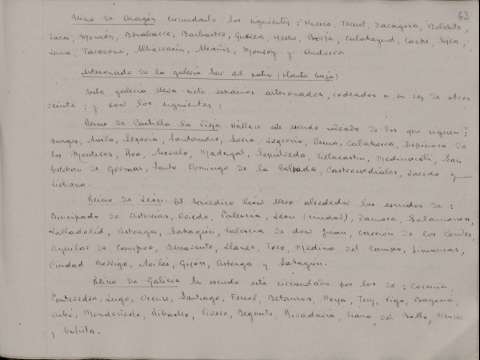 63
Reino de Aragón circundado los siguientes: Huesca, Teruel, Zaragoza,
Jaca, Monzón, Benabarre, Barbastro, Borja, Calatayud, Caspe,
Tarazona, Albarracín, Alcañiz, y
Artesonado de la galería Sur del patio (Planta baja)
Esta galería lleva siete escudos artesonados, rodeados a su vez de otros
veinte; y son los siguientes:
Reino de Castilla la Vieja hállase este escudo rodeado de los que siguen:
Burgos, Avila, Segovia, Santander, Soria, Logroño, Calahorra, Espinosa de
los Monteros, Roa, Arévalo, Madrigal, Sepúlveda, Villacastín, Medinaceli, San
Esteban de Gormaz, Santo Domingo de la Calzada, Castrourdiales, Laredo y
Reino de León. El heráldico León lleva alrededor los escudos de:
Principado de Asturias, Oviedo, Palencia, León (ciudad), Zamora, Salamanca,
Valladolid, Astorga, Sahagún, Valencia de don Juan, Carrión de los Condes
Aguilar de Campóo, Benavente, Llanes, Toro, Medina del Campo, Simancas,
Ciudad Rodrigo, Avilés, Gijón, Astorga y Sahagún.
Reino de Galicia Su escudo está circundado por los de: Coruña,
Pontevedra, Lugo, Orense, Santiago, Ferrol, Betanzos, Noya, Tuy, Vigo, Bayona,
Mondoñedo, Ribadeo, Vivero, Begonte, Rivadavia,
y